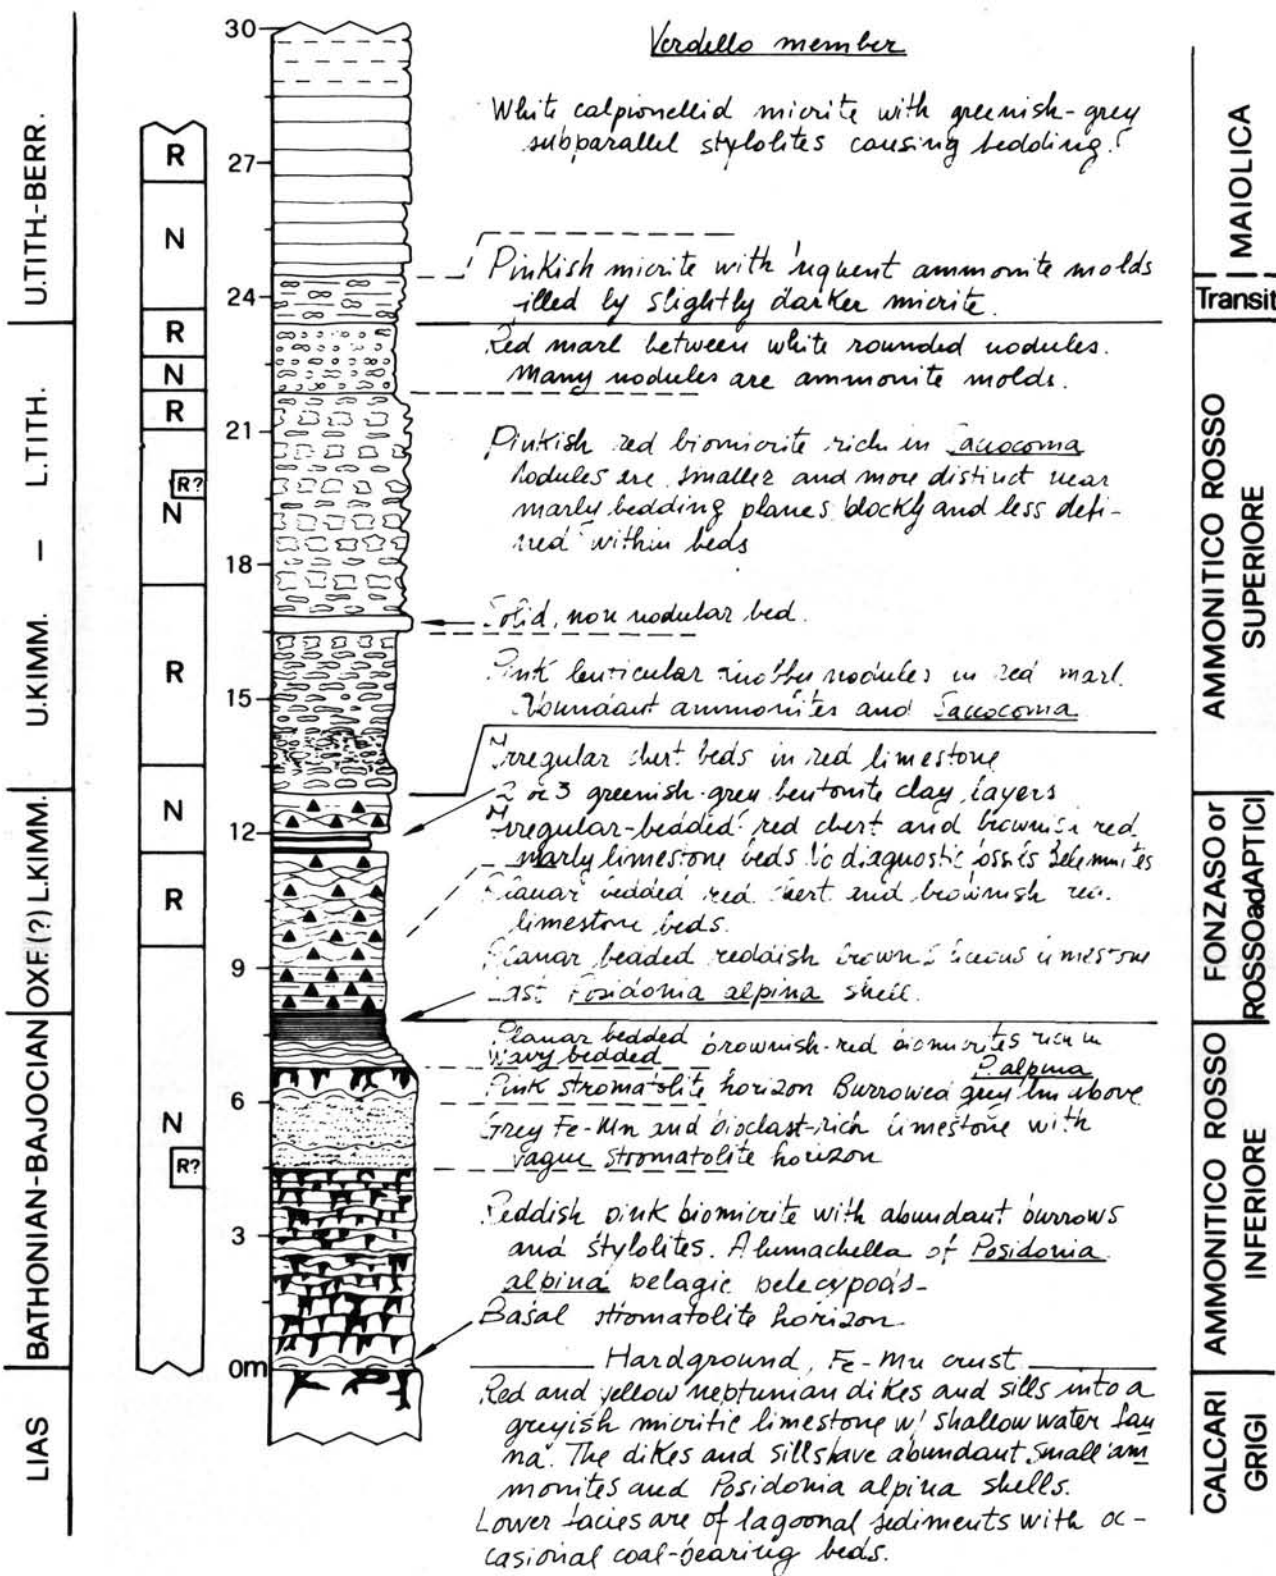 30
27
24
21
18
15
12
9
6
3
0m
U.TITH.-BERR.
L.TITH.
–
U.KIMM.
OXF.(?) L.KIMM.
BATHONIAN-BAJOCIAN
LIAS
R
N
R
N
R
R?
N
R
N
R
N
R?
Verdello member
White calpionellid micrite with greenish-grey
subparallel stylolites causing bedding.
Pinkish micrite with ammonite molds
by slightly darker micrite.
Red marl between white rounded nodules.
Many nodules are ammonite molds.
Pinkish red biomicrite rich in Saccocoma
Nodules are smaller and more distinct near
marly bedding planes blocky and less defi-
ned within beds
Solid, non nodular bed.
Pink lenticular nodules in red marl.
Abundant ammonites and Saccocoma
Irregular chert beds in red limestone
2 or 3 greenish-grey bentonite clay layers
Irregular-bedded red chert and brownish red
marly limestone beds. No diagnostic fossils Belemnites
Planar bedded red chert and brownish red
limestone beds.
Planar bedded reddish brown limestone
Last Posidonia alpina shell.
Planar bedded
Wavy bedded brownish-red biomicrites rich in
P. alpina
Pink stromatolite horizon Burrowed grey lm above
Grey Fe-Mn and bioclast-rich limestone with
vague stromatolite horizon
Reddish pink biomicrite with abundant burrows
and stylolites. A lumachella of Posidonia
alpina pelagic pelecypods-
Basal stromatolite horizon.
Hardground, Fe-Mn crust
Red and yellow neptunian dikes and sills into a
greyish micritic limestone w/ shallow water fau
na. The dikes and sills have abundant small am
monites and Posidonia alpina shells.
Lower facies are of lagoonal sediments with oc-
casional coal-bearing beds.
MAIOLICA
Transit
AMMONITICO ROSSO
SUPERIORE
FONZASO or
ROSSOadAPTICI
AMMONITICO ROSSO
INFERIORE
CALCARI
GRIGI